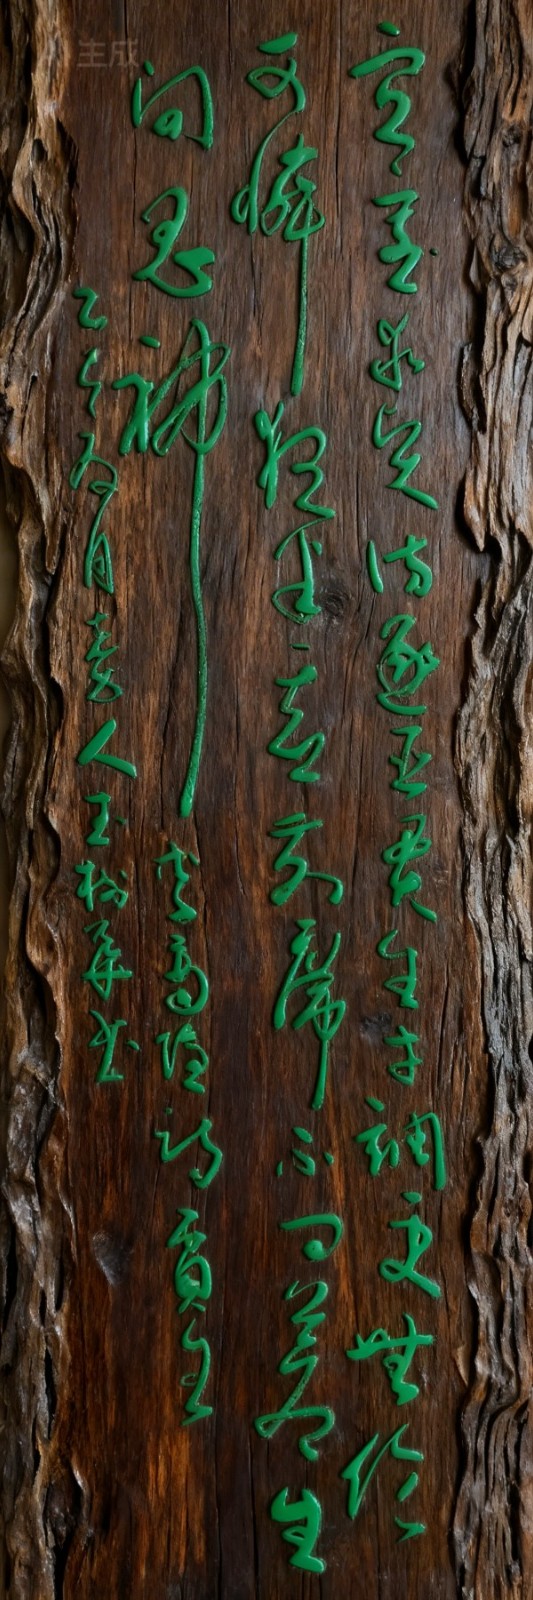 宣室求贤访逐臣贾生才调更无伦
可怜夜半虚前席不问苍生
问鬼神 李商隐诗贾生
乙巳 月 人玉树 书
生成